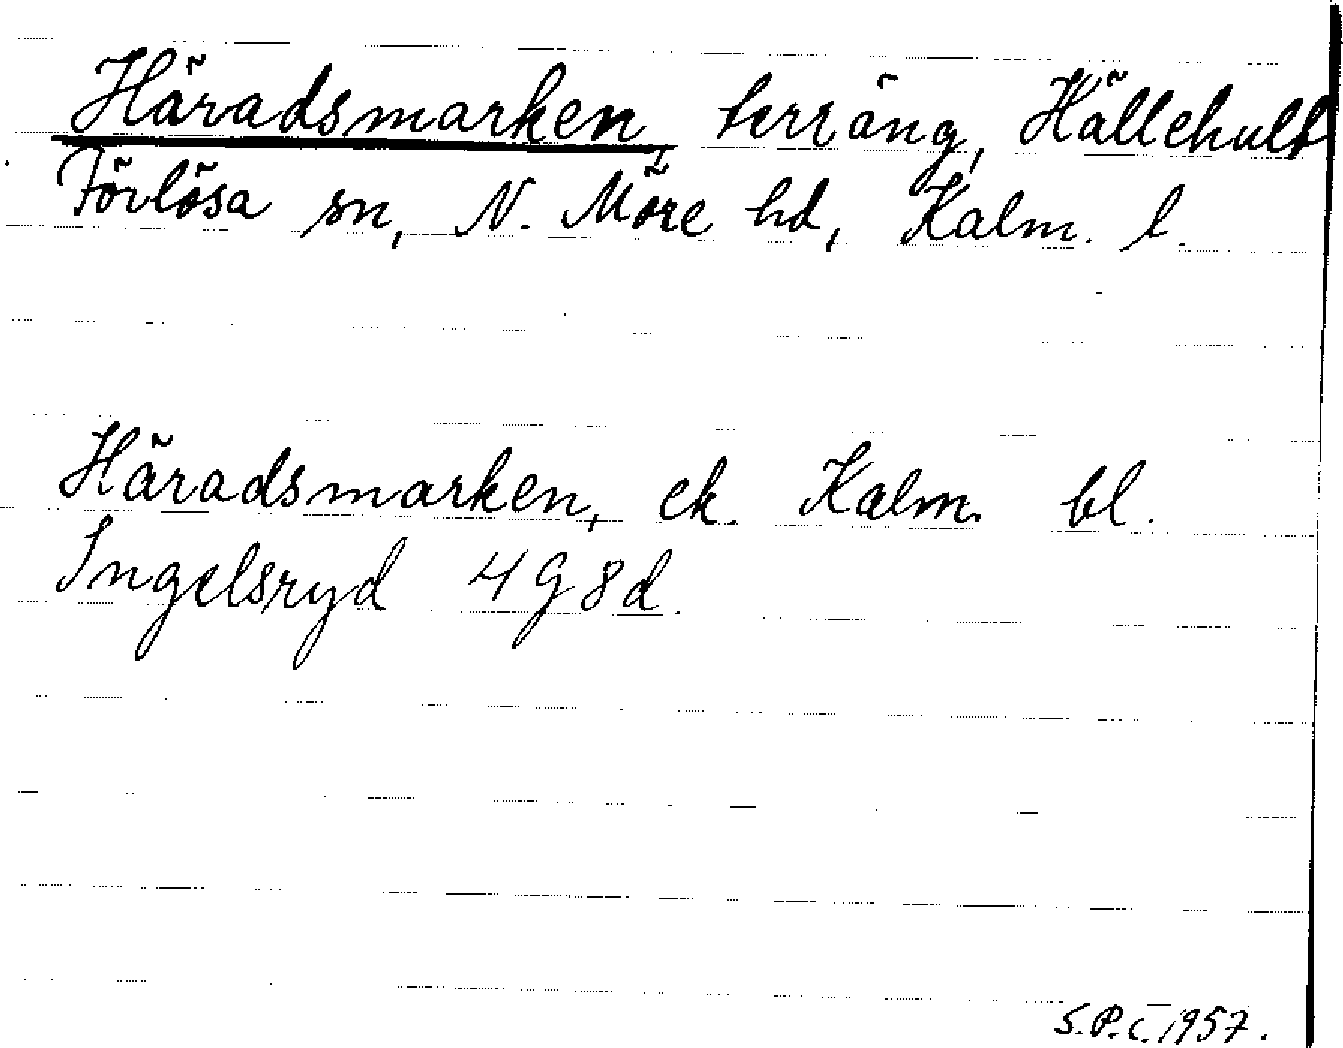 Häradsmarken, terräng, Hällehult
Förlösa sn, N. Möre hd, Kalm. l.
Häradsmarken, ek. Kalm. bl.
Ingelsryd 4G 8d.
S.P.C. 1957.